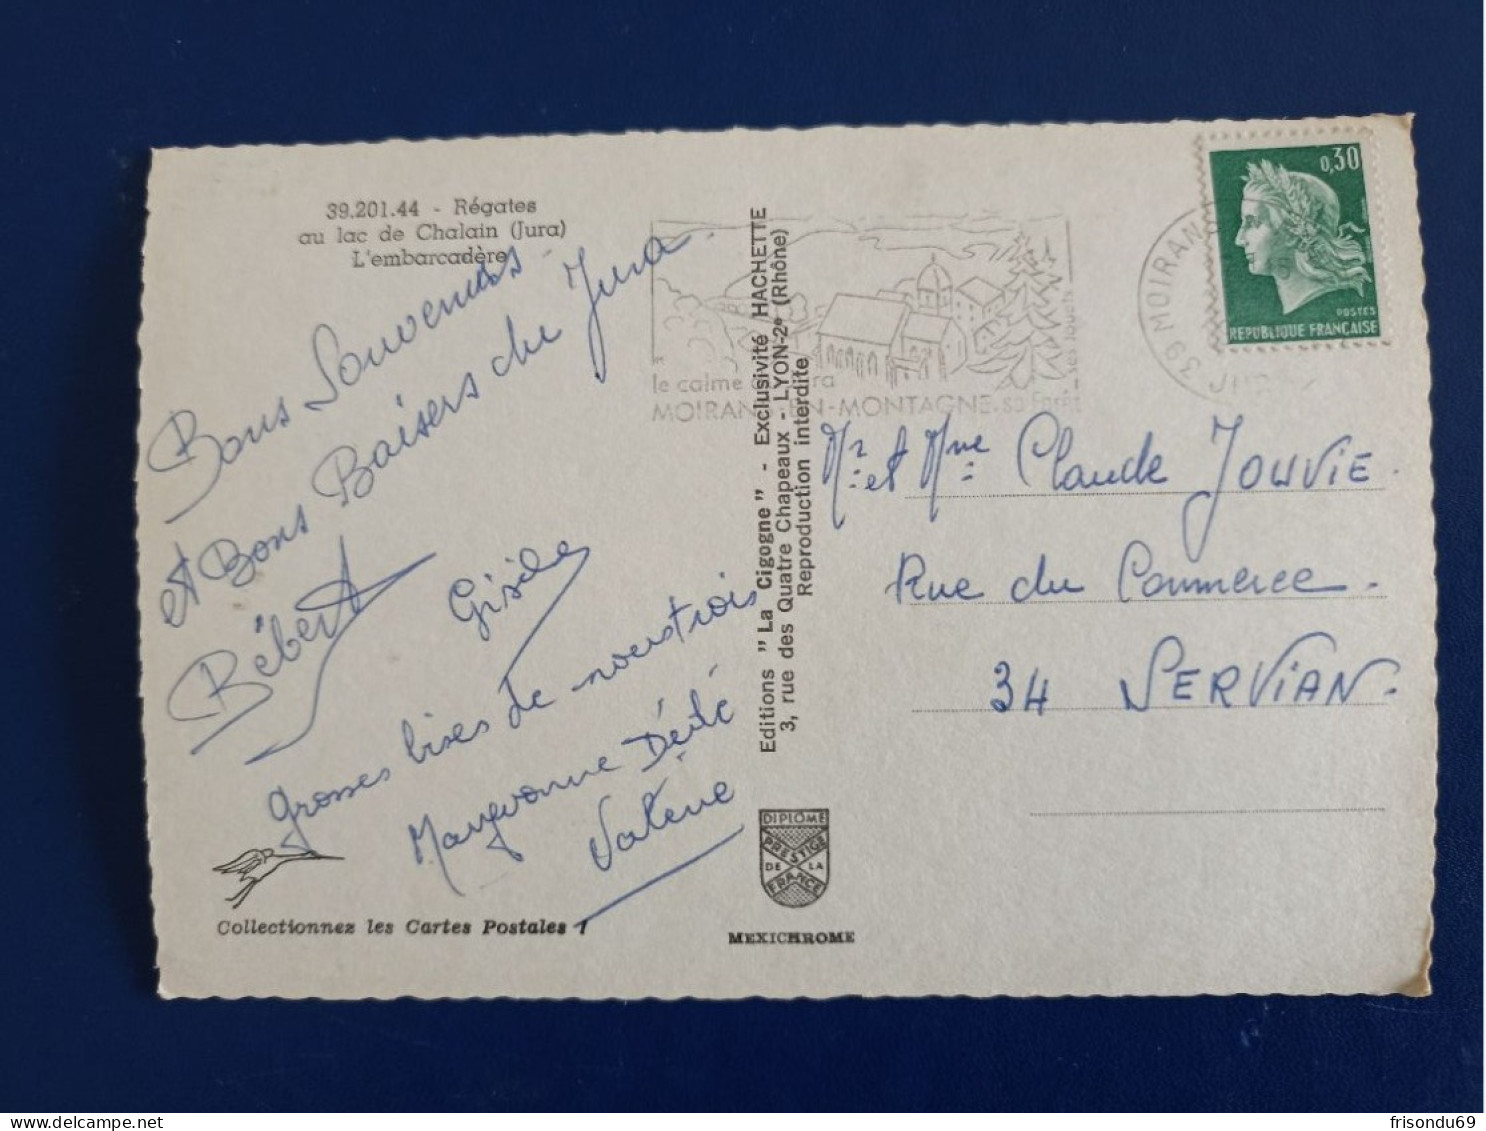 39.201.44 - Régates
au lac de Chalain (Jura)
L'embarcadère
Bons Souvenirs
et Bons Baisers du Jura
Bébert Gisèle
grosses bises de nous trois
Maryvonne Dédé
Valérie
Collectionnez les Cartes Postales !
Editions "La Cigogne" - Exclusivité HACHETTE
3, rue des Quatre Chapeaux - LYON-2e (Rhône)
Reproduction interdite
DIPLOME
PRESTIGE
DE LA
FRANCE
MEXICHROME
le calme du Jura
MOIRANS-EN-MONTAGNE. sa Forêt
ses Jouets
39 MOIRANS
JURA
0,30
POSTES
REPUBLIQUE FRANÇAISE
Mr et Mme Claude JOUVIE.
Rue du Commerce.
34 SERVIAN.
delcampe.net
frisondu69